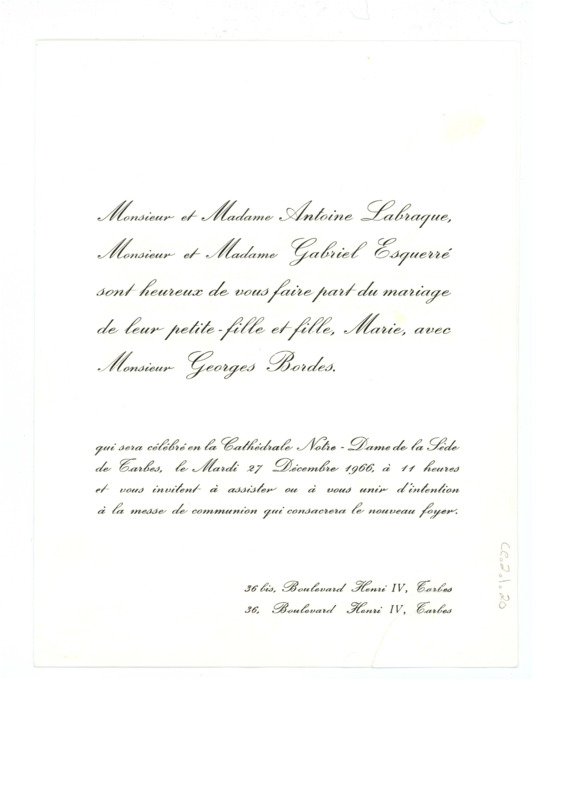 Monsieur et Madame Antoine Labraque,
Monsieur et Madame Gabriel Esquerré
sont heureux de vous faire part du mariage
de leur petite-fille et fille, Marie, avec
Monsieur Georges Bordes.
qui sera célébré en la Cathédrale Notre-Dame de la Sède
de Tarbes, le Mardi 27 Décembre 1966, à 11 heures
et vous invitent à assister ou à vous unir d'intention
à la messe de communion qui consacrera le nouveau foyer.
36 bis, Boulevard Henri IV, Tarbes
36, Boulevard Henri IV, Tarbes